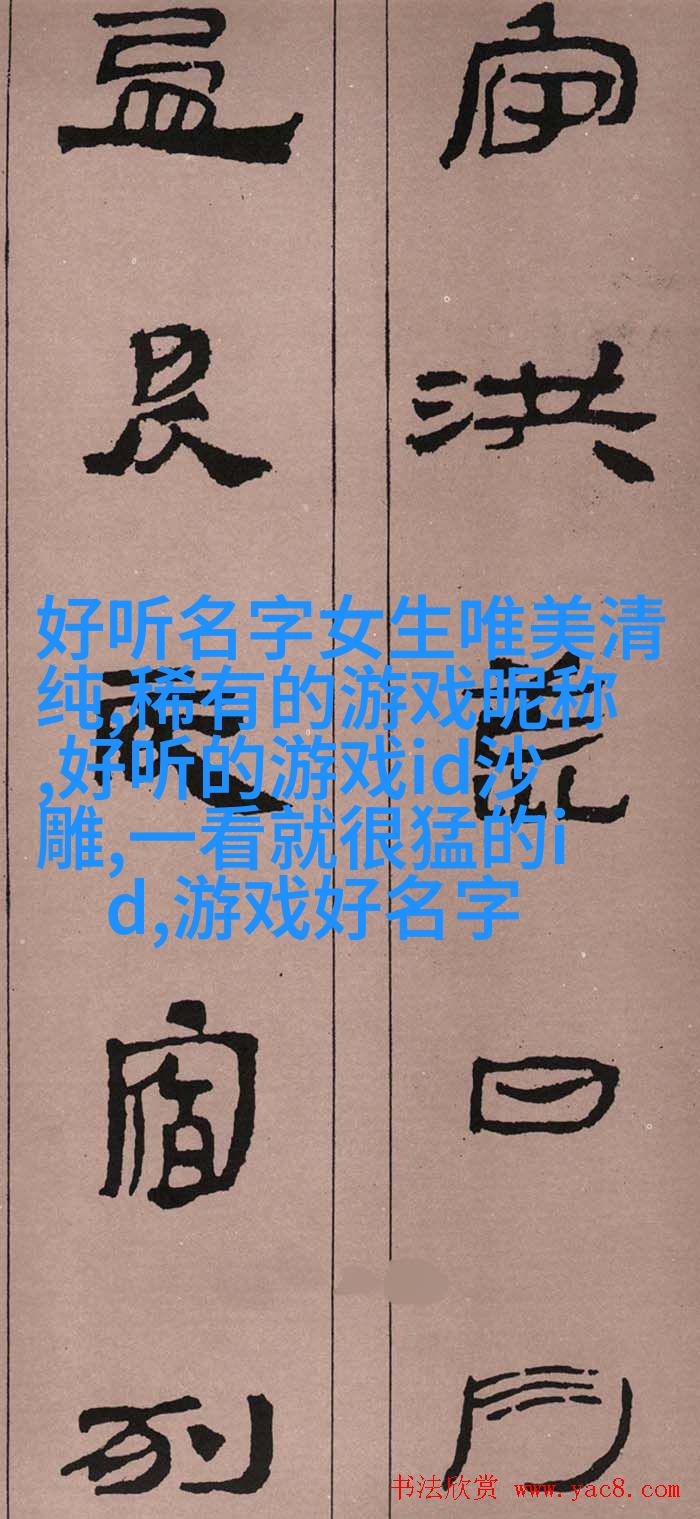 宙洪荒日月
盈昃辰宿列
好听名字女生唯美清
纯,稀有的游戏昵称
,好听的游戏id沙
雕,一看就很猛的i
d,游戏好名字
书法欣赏 www.yac8.com